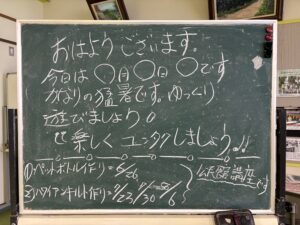 おはようございます。
今日は〇月〇日〇です
かなりの猛暑です。ゆっくり
遊びましょう。
楽しくユンタクしましょう!!
①ペットボトル作り=8/26
②ハワイアンキルト作り=9/
公民館講座です